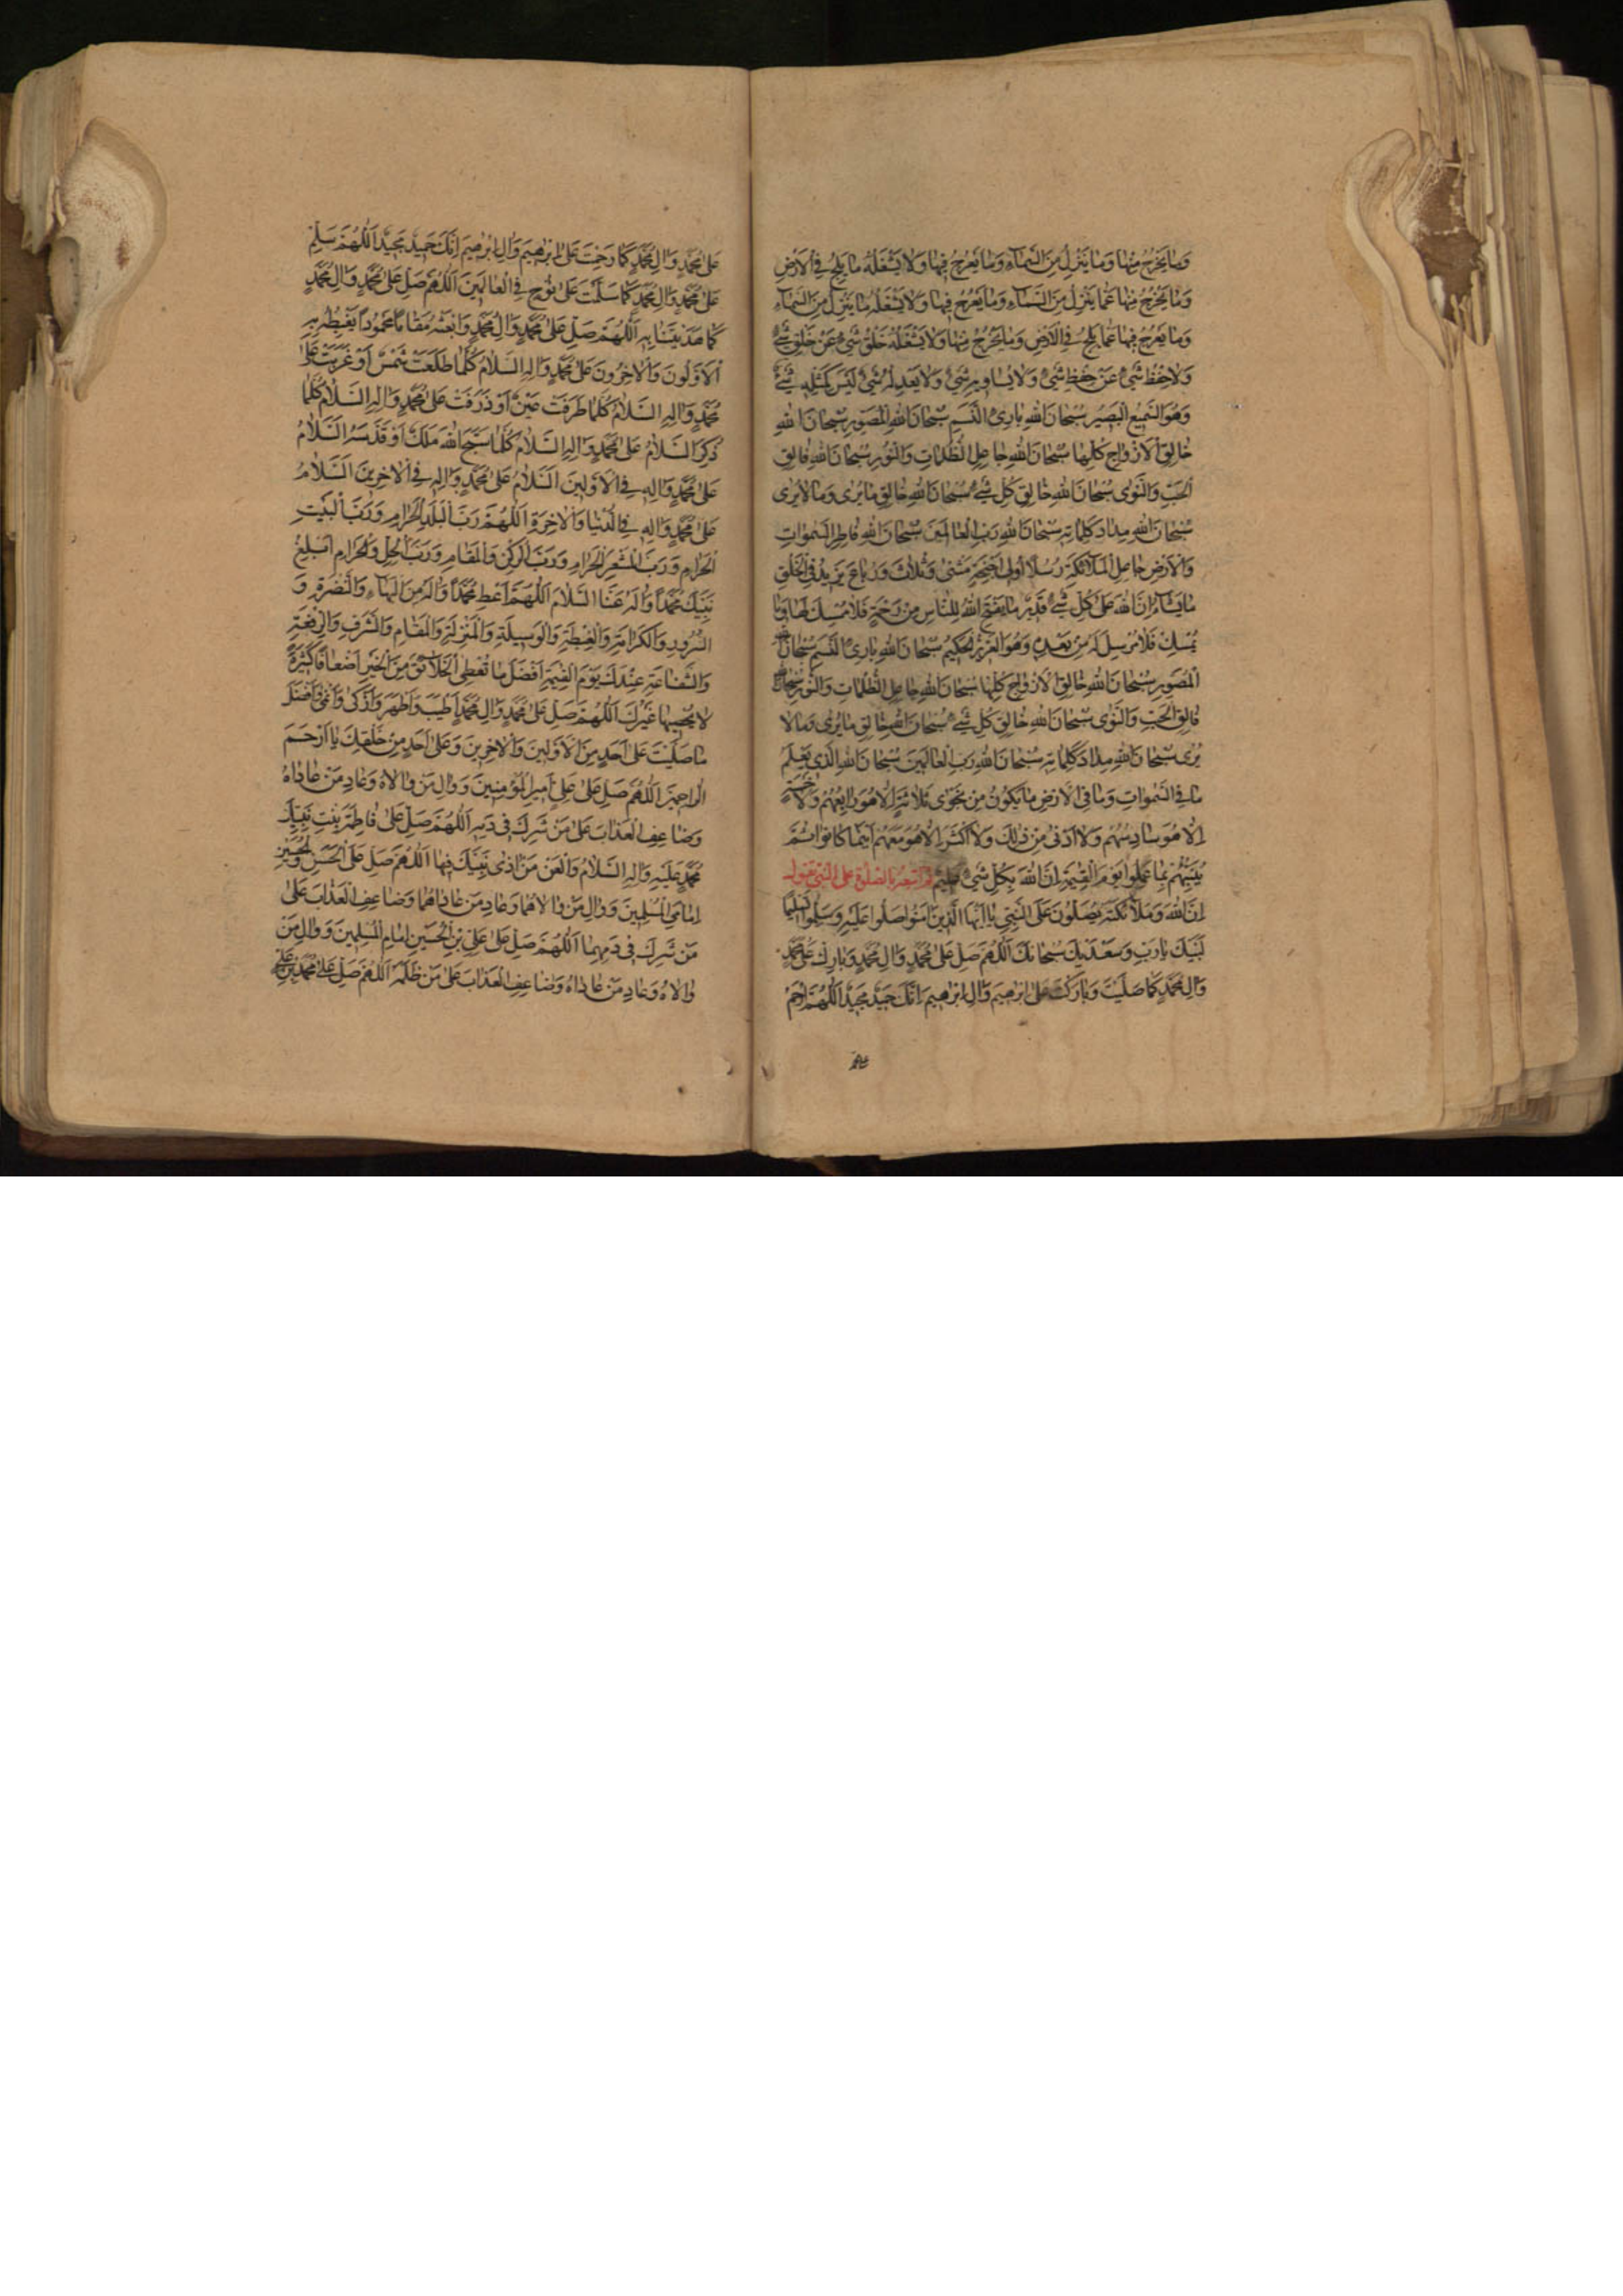 وَمَا يَخْرُجُ مِنْهَا وَمَا يَنْزِلُ مِنَ السَّمَاءِ وَمَا يَعْرُجُ فِيهَا وَلَا يَشْغَلُهُ مَا يَلِجُ فِي الْاَرْضِ
وَمَا يَخْرُجُ مِنْهَا عَمَّا يَنْزِلُ مِنَ السَّمَاءِ وَمَا يَعْرُجُ فِيهَا وَلَا يَشْغَلُهُ مَا يَنْزِلُ مِنَ السَّمَاءِ
وَمَا يَعْرُجُ فِيهَا عَمَّا يَلِجُ فِي الْاَرْضِ وَمَا يَخْرُجُ مِنْهَا وَلَا يَشْغَلُهُ خَلْقُ شَيْءٍ عَنْ خَلْقِ شَيْءٍ
وَلَا حِفْظُ شَيْءٍ عَنْ حِفْظِ شَيْءٍ وَلَا يُسَاوِيهِ شَيْءٌ وَلَا يَعْدِلُهُ شَيْءٌ لَيْسَ كَمِثْلِهِ شَيْءٌ
وَهُوَ السَّمِيعُ الْبَصِيرُ سُبْحَانَ اللهِ بَارِئِ النَّسَمِ سُبْحَانَ اللهِ الْمُصَوِّرِ سُبْحَانَ اللهِ
خَالِقِ الْاَزْوَاجِ كُلِّهَا سُبْحَانَ اللهِ جَاعِلِ الظُّلُمَاتِ وَالنُّورِ سُبْحَانَ اللهِ فَالِقِ
الْحَبِّ وَالنَّوٰى سُبْحَانَ اللهِ خَالِقِ كُلِّ شَيْءٍ سُبْحَانَ اللهِ خَالِقِ مَا يُرٰى وَمَا لَا يُرٰى
سُبْحَانَ اللهِ مِدَادَ كَلِمَاتِهِ سُبْحَانَ اللهِ رَبِّ الْعَالَمِينَ سُبْحَانَ اللهِ فَاطِرِ السَّمٰوَاتِ
وَالْاَرْضِ جَاعِلِ الْمَلَائِكَةِ رُسُلًا اُولِي اَجْنِحَةٍ مَثْنٰى وَثُلَاثَ وَرُبَاعَ يَزِيدُ فِي الْخَلْقِ
مَا يَشَاءُ اِنَّ اللهَ عَلٰى كُلِّ شَيْءٍ قَدِيرٌ مَا يَفْتَحِ اللهُ لِلنَّاسِ مِنْ رَحْمَةٍ فَلَا مُمْسِكَ لَهَا وَمَا
يُمْسِكْ فَلَا مُرْسِلَ لَهُ مِنْ بَعْدِهِ وَهُوَ الْعَزِيزُ الْحَكِيمُ سُبْحَانَ اللهِ بَارِئِ النَّسَمِ سُبْحَانَ اللهِ
الْمُصَوِّرِ سُبْحَانَ اللهِ خَالِقِ الْاَزْوَاجِ كُلِّهَا سُبْحَانَ اللهِ جَاعِلِ الظُّلُمَاتِ وَالنُّورِ سُبْحَانَ اللهِ
فَالِقِ الْحَبِّ وَالنَّوٰى سُبْحَانَ اللهِ خَالِقِ كُلِّ شَيْءٍ سُبْحَانَ اللهِ خَالِقِ مَا يُرٰى وَمَا لَا
يُرٰى سُبْحَانَ اللهِ مِدَادَ كَلِمَاتِهِ سُبْحَانَ اللهِ رَبِّ الْعَالَمِينَ سُبْحَانَ اللهِ الَّذِي يَعْلَمُ
مَا فِي السَّمٰوَاتِ وَمَا فِي الْاَرْضِ مَا يَكُونُ مِنْ نَجْوٰى ثَلَاثَةٍ اِلَّا هُوَ رَابِعُهُمْ وَلَا خَمْسَةٍ
اِلَّا هُوَ سَادِسُهُمْ وَلَا اَدْنٰى مِنْ ذٰلِكَ وَلَا اَكْثَرَ اِلَّا هُوَ مَعَهُمْ اَيْنَمَا كَانُوا ثُمَّ
يُنَبِّئُهُمْ بِمَا عَمِلُوا يَوْمَ الْقِيٰمَةِ اِنَّ اللهَ بِكُلِّ شَيْءٍ عَلِيمٌ ثم اتبعه بالصلوة على النبي تقول
اِنَّ اللهَ وَمَلَائِكَتَهُ يُصَلُّونَ عَلَى النَّبِيِّ يَا اَيُّهَا الَّذِينَ اٰمَنُوا صَلُّوا عَلَيْهِ وَسَلِّمُوا تَسْلِيمًا
لَبَّيْكَ يَا رَبِّ وَسَعْدَيْكَ سُبْحَانَكَ اَللّٰهُمَّ صَلِّ عَلٰى مُحَمَّدٍ وَاٰلِ مُحَمَّدٍ وَبَارِكْ عَلٰى مُحَمَّدٍ
وَاٰلِ مُحَمَّدٍ كَمَا صَلَّيْتَ وَبَارَكْتَ عَلٰى اِبْرٰهِيمَ وَاٰلِ اِبْرٰهِيمَ اِنَّكَ حَمِيدٌ مَجِيدٌ اَللّٰهُمَّ ارْحَمْ
عَلٰى مُحَمَّدٍ وَاٰلِ مُحَمَّدٍ كَمَا رَحِمْتَ عَلٰى اِبْرٰهِيمَ وَاٰلِ اِبْرٰهِيمَ اِنَّكَ حَمِيدٌ مَجِيدٌ اَللّٰهُمَّ سَلِّمْ
عَلٰى مُحَمَّدٍ وَاٰلِ مُحَمَّدٍ كَمَا سَلَّمْتَ عَلٰى نُوحٍ فِي الْعَالَمِينَ اَللّٰهُمَّ صَلِّ عَلٰى مُحَمَّدٍ وَاٰلِ مُحَمَّدٍ
كَمَا هَدَيْتَنَا بِهِ اَللّٰهُمَّ صَلِّ عَلٰى مُحَمَّدٍ وَاٰلِ مُحَمَّدٍ وَابْعَثْهُ مَقَامًا مَحْمُودًا يَغْبِطُهُ بِهِ
الْاَوَّلُونَ وَالْاٰخِرُونَ عَلٰى مُحَمَّدٍ وَاٰلِهِ السَّلَامُ كُلَّمَا طَلَعَتْ شَمْسٌ اَوْ غَرَبَتْ عَلٰى
مُحَمَّدٍ وَاٰلِهِ السَّلَامُ كُلَّمَا طَرَفَتْ عَيْنٌ اَوْ ذَرَفَتْ عَلٰى مُحَمَّدٍ وَاٰلِهِ السَّلَامُ كُلَّمَا
ذُكِرَ السَّلَامُ عَلٰى مُحَمَّدٍ وَاٰلِهِ السَّلَامُ كُلَّمَا سَبَّحَ اللهَ مَلَكٌ اَوْ قَدَّسَهُ السَّلَامُ
عَلٰى مُحَمَّدٍ وَاٰلِهِ فِي الْاَوَّلِينَ السَّلَامُ عَلٰى مُحَمَّدٍ وَاٰلِهِ فِي الْاٰخِرِينَ السَّلَامُ
عَلٰى مُحَمَّدٍ وَاٰلِهِ فِي الدُّنْيَا وَالْاٰخِرَةِ اَللّٰهُمَّ رَبَّ الْبَلَدِ الْحَرَامِ وَرَبَّ الْبَيْتِ
الْحَرَامِ وَرَبَّ الْمَشْعَرِ الْحَرَامِ وَرَبَّ الرُّكْنِ وَالْمَقَامِ وَرَبَّ الْحِلِّ وَالْحَرَامِ اَبْلِغْ
نَبِيَّكَ مُحَمَّدًا وَاٰلَهُ عَنَّا السَّلَامَ اَللّٰهُمَّ اَعْطِ مُحَمَّدًا وَاٰلَهُ مِنَ الْبَهَاءِ وَالنَّضْرَةِ وَ
السُّرُورِ وَالْكَرَامَةِ وَالْغِبْطَةِ وَالْوَسِيلَةِ وَالْمَنْزِلَةِ وَالْمَقَامِ وَالشَّرَفِ وَالرِّفْعَةِ
وَالشَّفَاعَةِ عِنْدَكَ يَوْمَ الْقِيٰمَةِ اَفْضَلَ مَا تُعْطِي الْخَلَائِقَ مِنَ الْخَيْرِ اَضْعَافًا كَثِيرَةً
لَا يُحْصِيهَا غَيْرُكَ اَللّٰهُمَّ صَلِّ عَلٰى مُحَمَّدٍ وَاٰلِ مُحَمَّدٍ اَطْيَبَ وَاَطْهَرَ وَاَزْكٰى وَاَنْمٰى وَاَفْضَلَ
مَا صَلَّيْتَ عَلٰى اَحَدٍ مِنَ الْاَوَّلِينَ وَالْاٰخِرِينَ وَعَلٰى اَحَدٍ مِنْ خَلْقِكَ يَا اَرْحَمَ
الرَّاحِمِينَ اَللّٰهُمَّ صَلِّ عَلٰى عَلِيٍّ اَمِيرِ الْمُؤْمِنِينَ وَوَالِ مَنْ وَالَاهُ وَعَادِ مَنْ عَادَاهُ
وَضَاعِفِ الْعَذَابَ عَلٰى مَنْ شَرِكَ فِي دَمِهِ اَللّٰهُمَّ صَلِّ عَلٰى فَاطِمَةَ بِنْتِ نَبِيِّكَ
مُحَمَّدٍ عَلَيْهِ وَاٰلِهِ السَّلَامُ وَالْعَنْ مَنْ اٰذٰى نَبِيَّكَ فِيهَا اَللّٰهُمَّ صَلِّ عَلَى الْحَسَنِ وَالْحُسَيْنِ
اِمَامَيِ الْمُسْلِمِينَ وَوَالِ مَنْ وَالَاهُمَا وَعَادِ مَنْ عَادَاهُمَا وَضَاعِفِ الْعَذَابَ عَلٰى
مَنْ شَرِكَ فِي دَمِهِمَا اَللّٰهُمَّ صَلِّ عَلٰى عَلِيِّ بْنِ الْحُسَيْنِ اِمَامِ الْمُسْلِمِينَ وَوَالِ مَنْ
وَالَاهُ وَعَادِ مَنْ عَادَاهُ وَضَاعِفِ الْعَذَابَ عَلٰى مَنْ ظَلَمَهُ اَللّٰهُمَّ صَلِّ عَلٰى مُحَمَّدِ بْنِ عَلِيٍّ